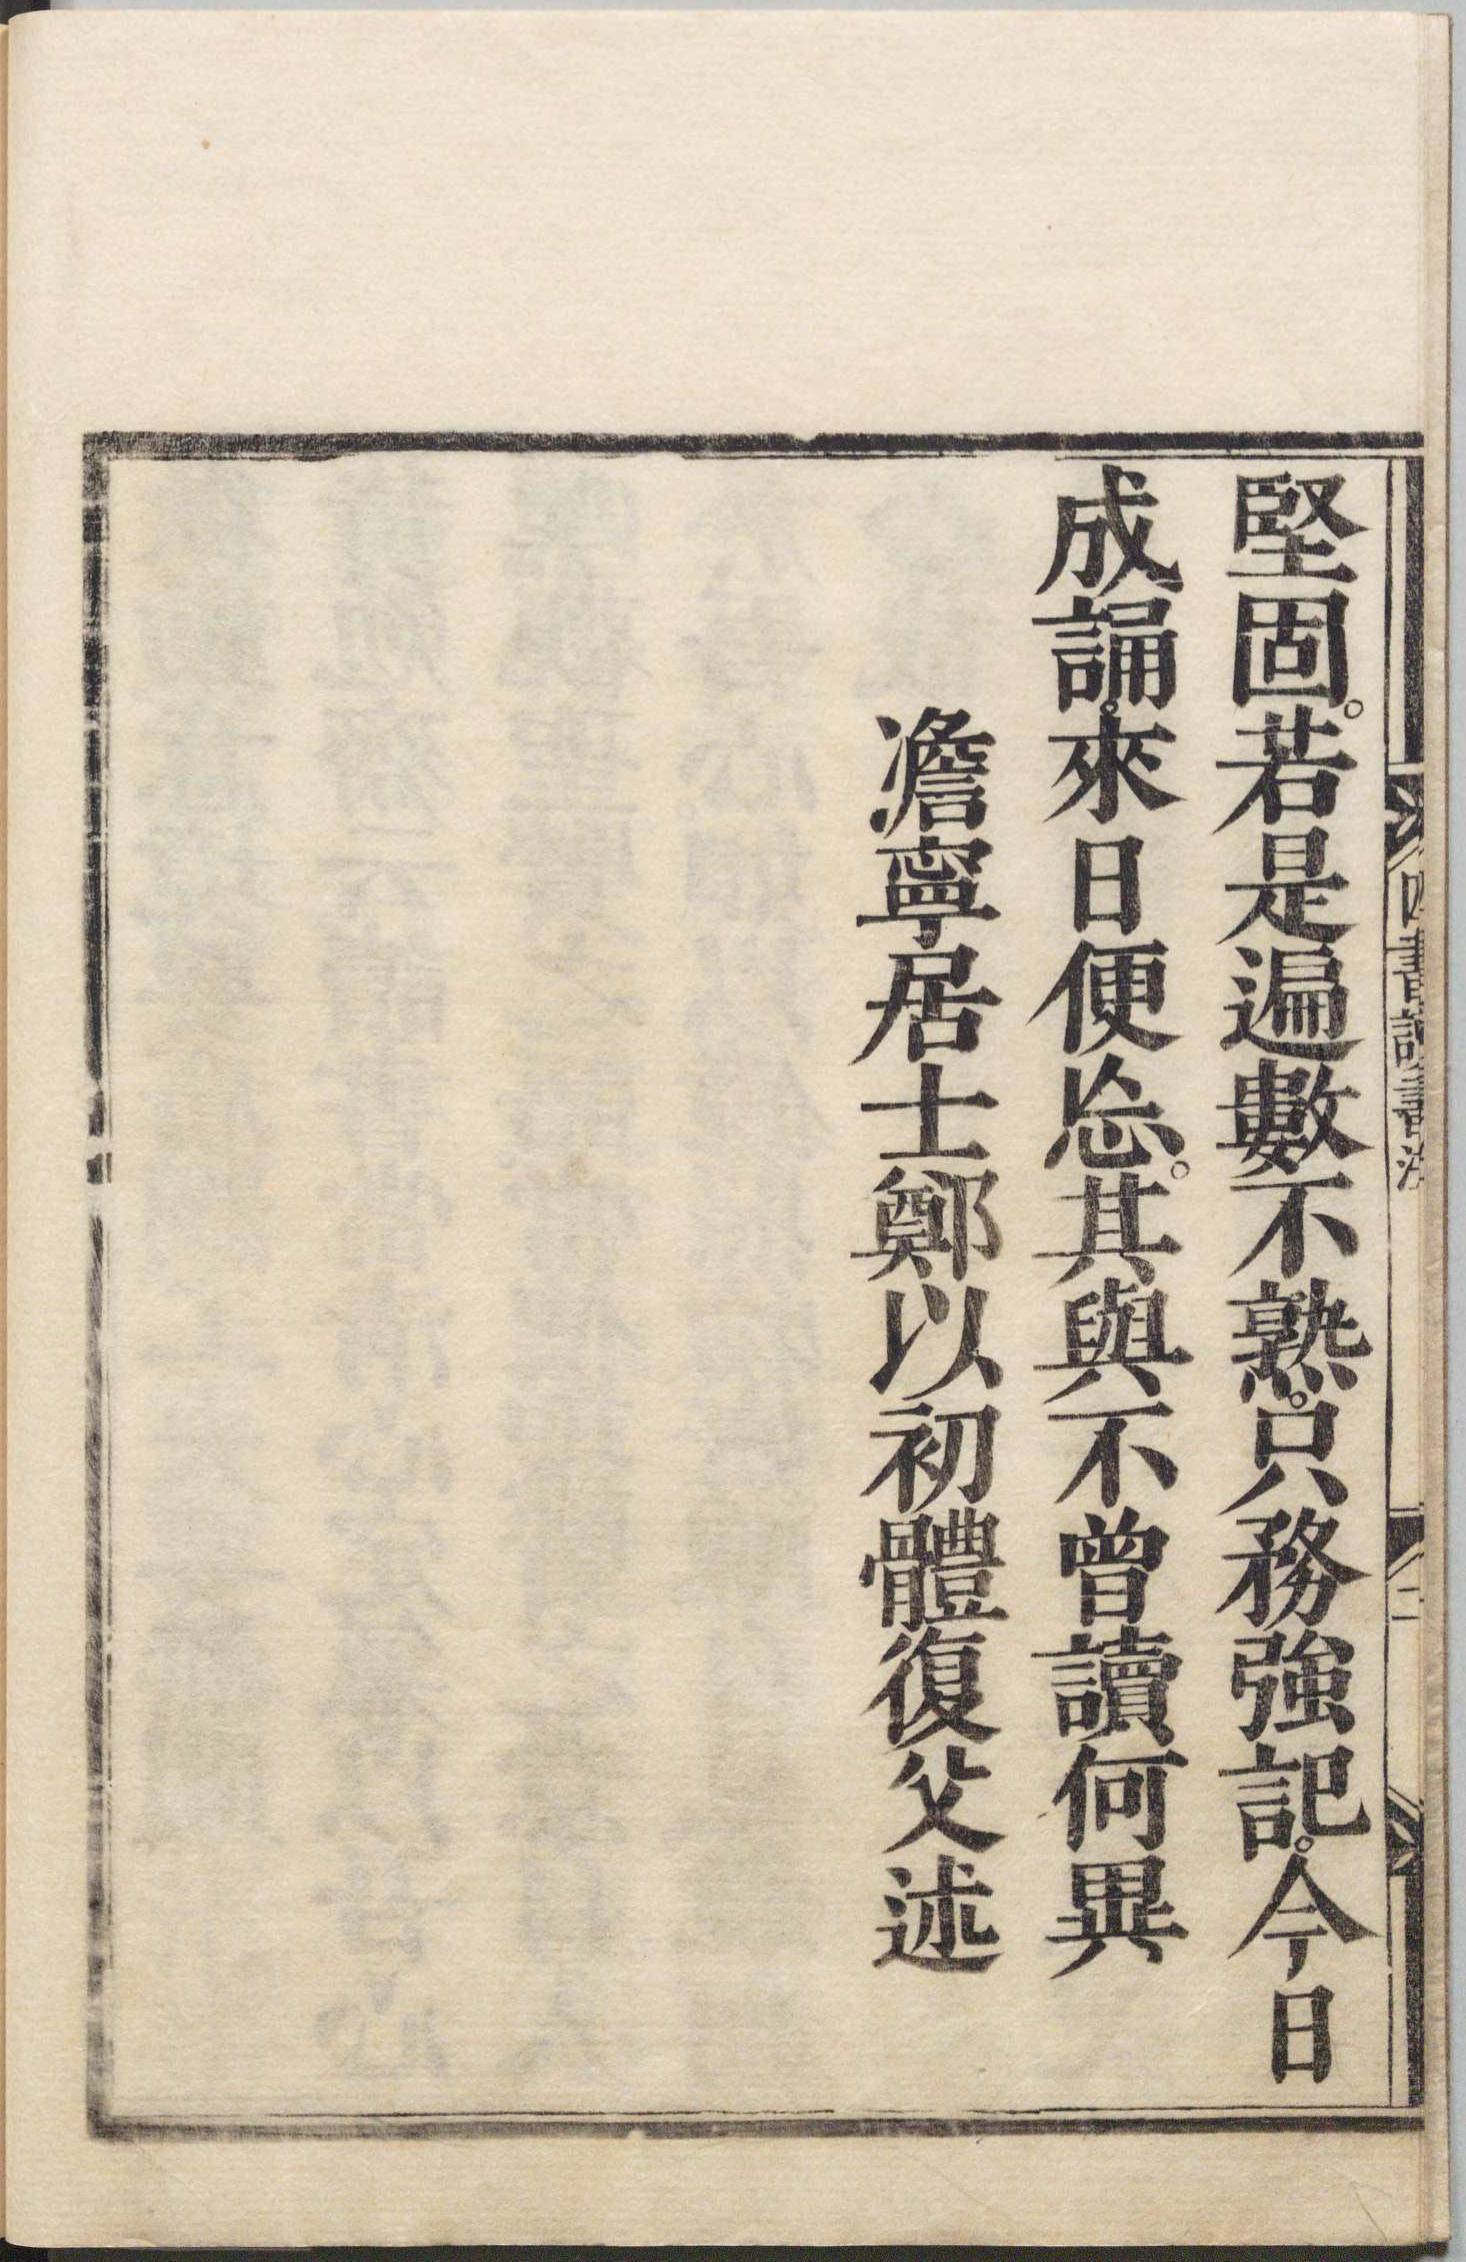 堅固。若是遍數不熟。只務強記。今日
成誦。來日便忘。其與不曾讀何異
澹寧居士鄭以初體復父述
四書讀書法
二